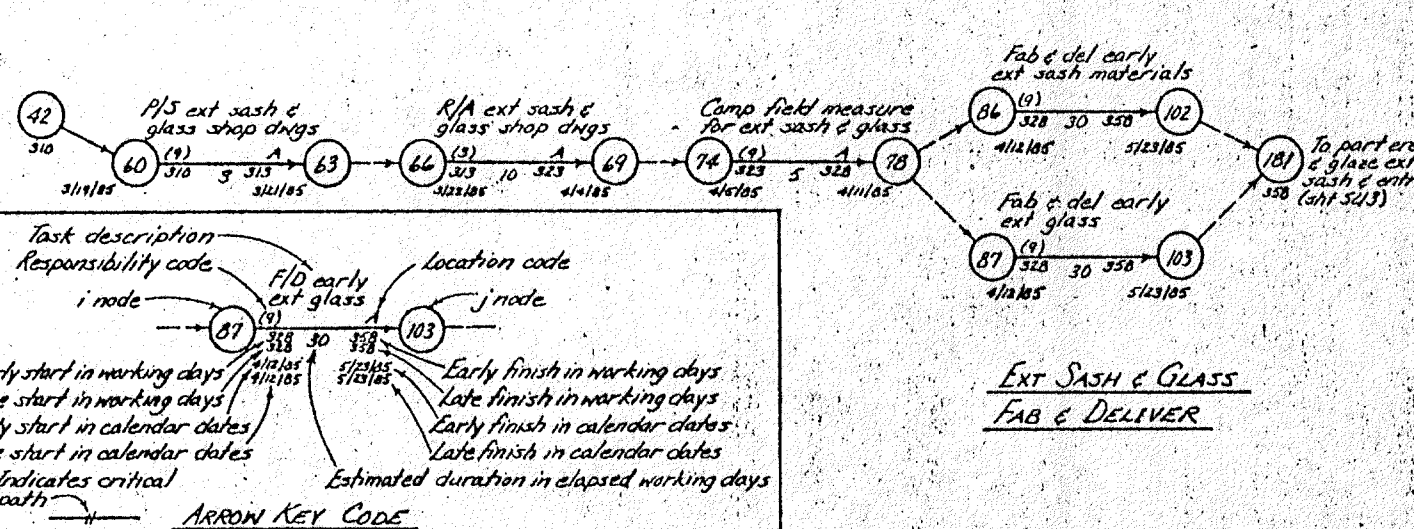 42
310
60
P/S ext sash &
glass shop dwgs
(9) A
310 3 313
3/19/85 3/21/85
63
66
R/A ext sash &
glass shop dwgs
(3) A
313 10 323
3/22/85 4/4/85
69
74
Comp field measure
for ext sash & glass
(9) A
323 5 328
4/5/85 4/11/85
78
Fab & del early
ext sash materials
86
(9)
328 30 358
4/12/85 5/23/85
102
Fab & del early
ext glass
87
(9)
328 30 358
4/12/85 5/23/85
103
181
358
To part
& glaze
sash &
(sht 5413)
Task description
Responsibility code
i node
F/D early
ext glass
Location code
j node
87
(9) A
328 30 358
328 358
4/12/85 5/23/85
4/12/85 5/23/85
103
start in working days
start in working days
start in calendar dates
start in calendar dates
Indicates critical
path
Early finish in working days
Late finish in working days
Early finish in calendar dates
Late finish in calendar dates
Estimated duration in elapsed working days
ARROW KEY CODE
EXT SASH & GLASS
FAB & DELIVER